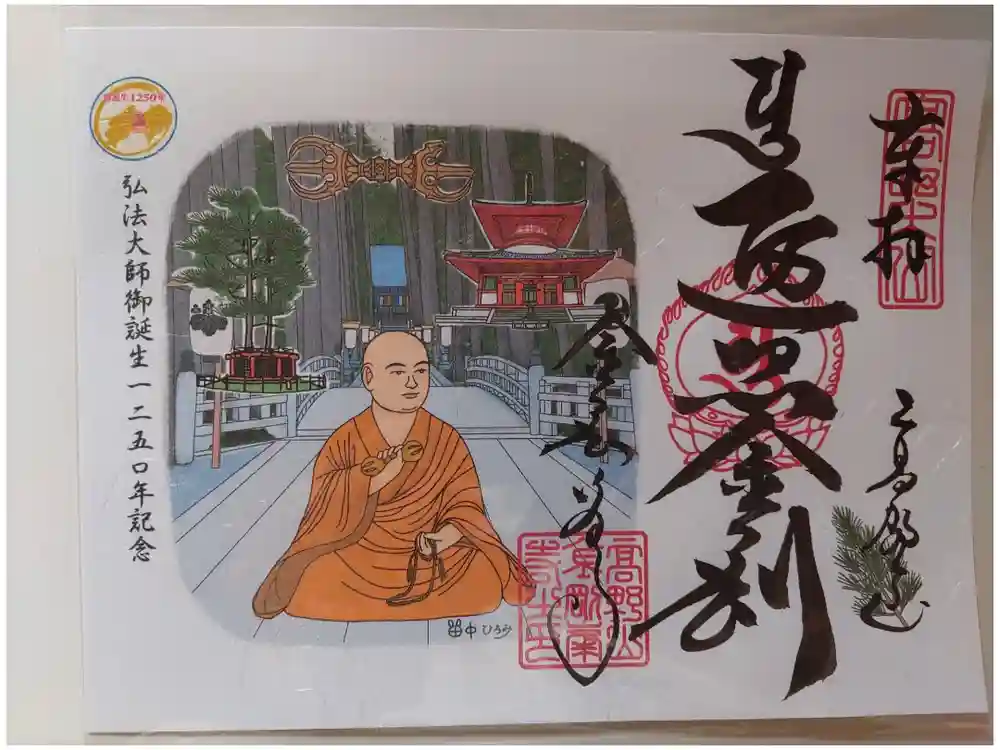 奉拝
高野山
遍照金剛
金剛峯寺
高野山
金剛峯
寺之印
御誕生1250年
弘法大師御誕生一二五〇年記念
田中ひろみ